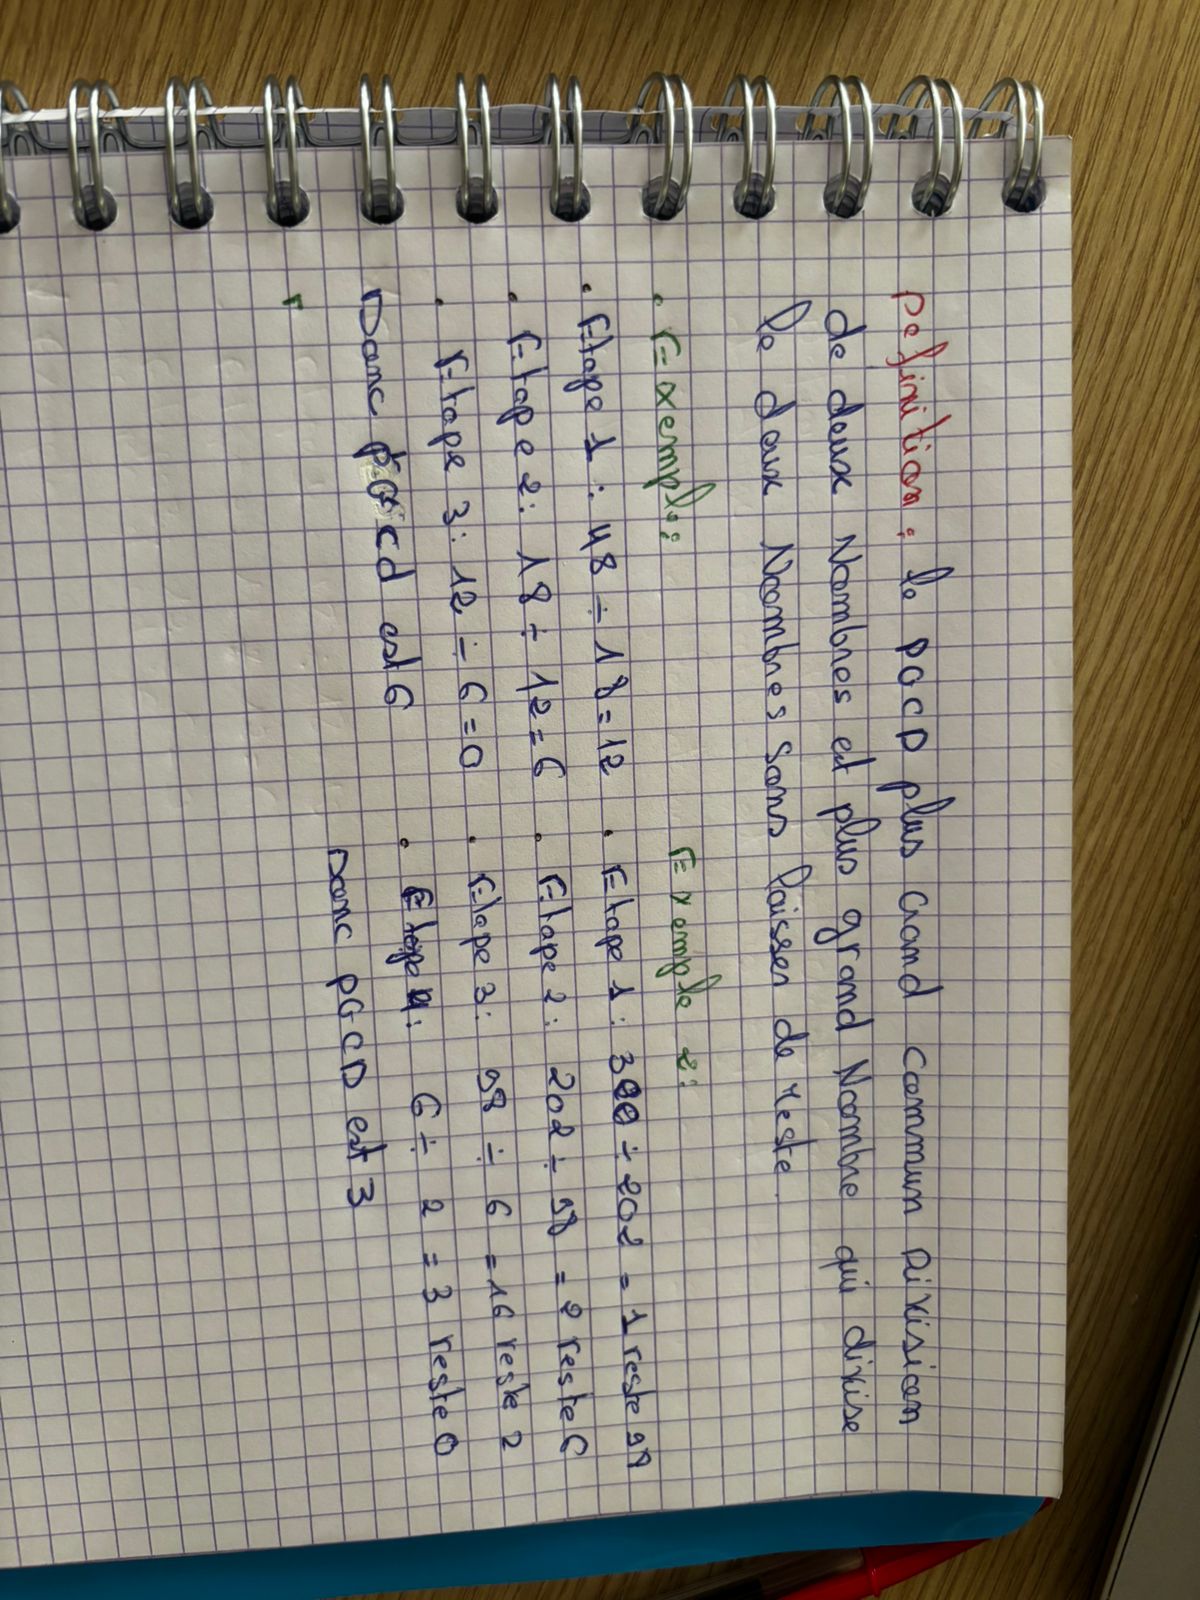 Definition : le PGCD plus Grand Commun Division
de deux Nombres et plus grand Nombre qui divise
le deux Nombres sans laisser de reste
. Exemple:
. Etape 1 : 48 ÷ 18 = 12
. Etape 2: 18 ÷ 12 = 6
. Etape 3: 12 ÷ 6 = 0
Donc PGcd est 6
Exemple 2:
. Etape 1 : 300 ÷ 202 = 1 reste 98
. Etape 2: 202 ÷ 98 = 2 reste 6
. Etape 3: 98 ÷ 6 = 16 reste 2
. Etape 4: 6 ÷ 2 = 3 reste 0
Donc PGCD est 3